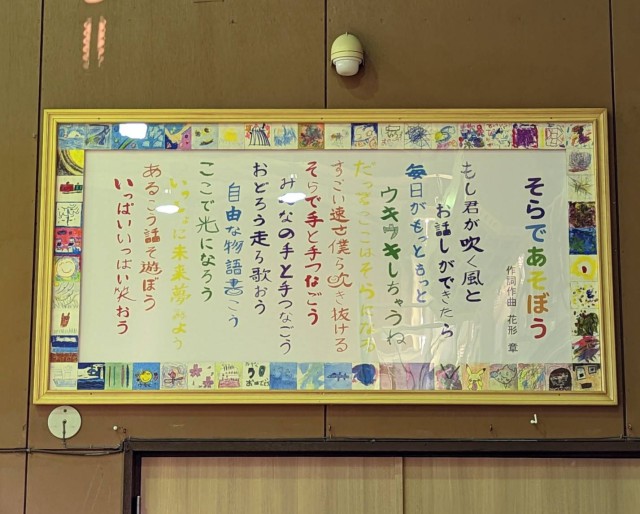 そらであそぼう
作詞作曲 花形 章
もし君が吹く風と
お話しができたら
毎日がもっともっと
ウキウキしちゃうね
だってここはそらになる
すごい速さ僕ら吹き抜ける
そらで手と手つなごう
みんなの手と手つなごう
おどろう走ろ歌おう
自由な物語書こう
ここで光になろう
いっしょに未来夢みよう
あるこう話そ遊ぼう
いっぱいいっぱい笑おう